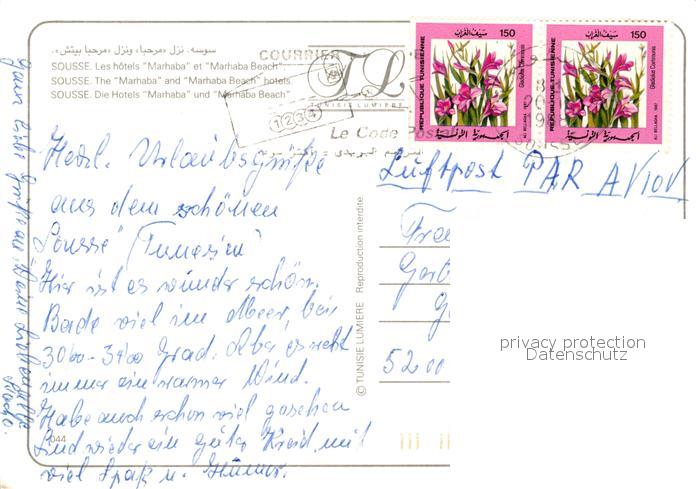 سوسه. نزل «مرحبا» ونزل «مرحبا بيتش».
SOUSSE. Les hôtels "Marhaba" et "Marhaba Beach".
SOUSSE. The "Marhaba" and "Marhaba Beach" hotels.
SOUSSE. Die Hotels "Marhaba" und "Marhaba Beach"
COURRIER
TL
TUNISIE LUMIERE
1234
Le Code Postal
REPUBLIQUE TUNISIENNE
سيف الغراب
150
Gladiolus Communis
الجمهورية التونسية
ALI BELLAGHA 1987
REPUBLIQUE TUNISIENNE
سيف الغراب
150
Gladiolus Communis
الجمهورية التونسية
ALI BELLAGHA 1987
Luftpost PAR AVION
Herzl. Urlaubsgrüße
aus dem schönen
Sousse (Tunesien)
Hier ist es wunderschön.
Bade viel im Meer, bei
30oo-34oo Grad. Aber es weht
immer ein warmer Wind.
Habe auch schon viel gesehen
Sind wieder ein guter Kreis mit
viel Spaß u. Humor.
Ganz liebe Grüße
© TUNISIE LUMIERE Reproduction interdite
5200
044
privacy protection
Datenschutz